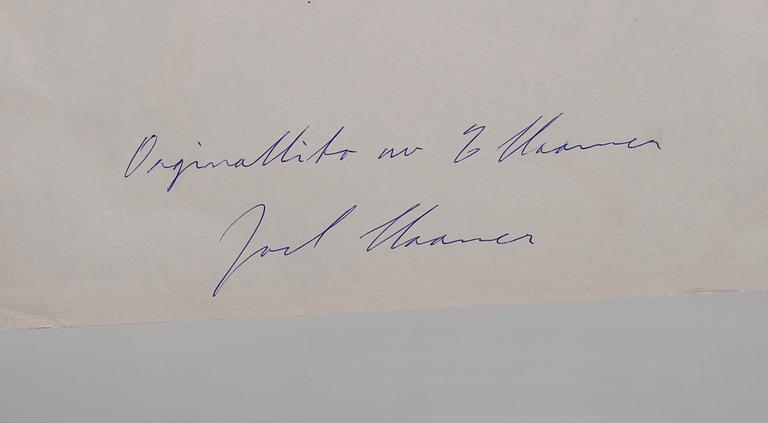 Orginallito av E Haamer
Joel Haamer